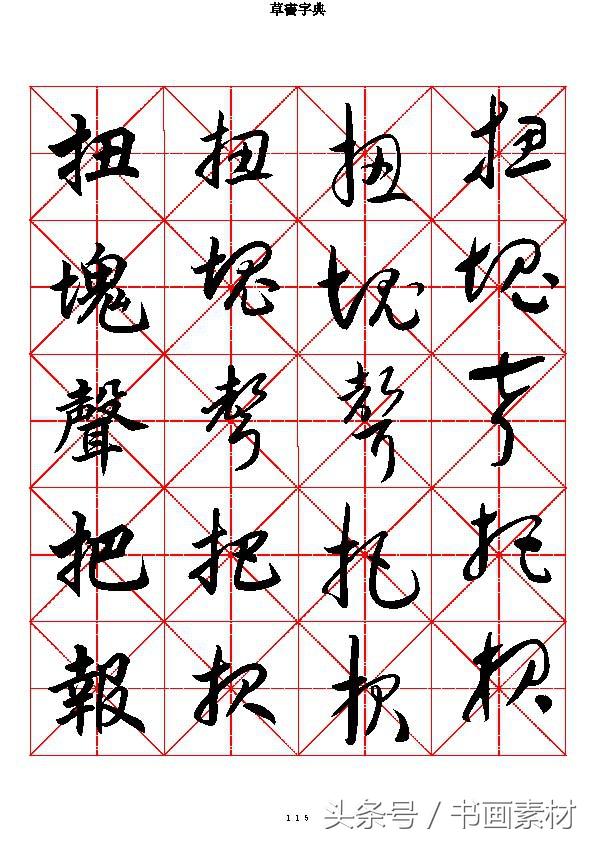 草書字典
扭 扭 扭 扭
塊 塊 塊 塊
聲 聲 聲 聲
把 把 把 把
報 報 報 報
115
头条号 / 书画素材